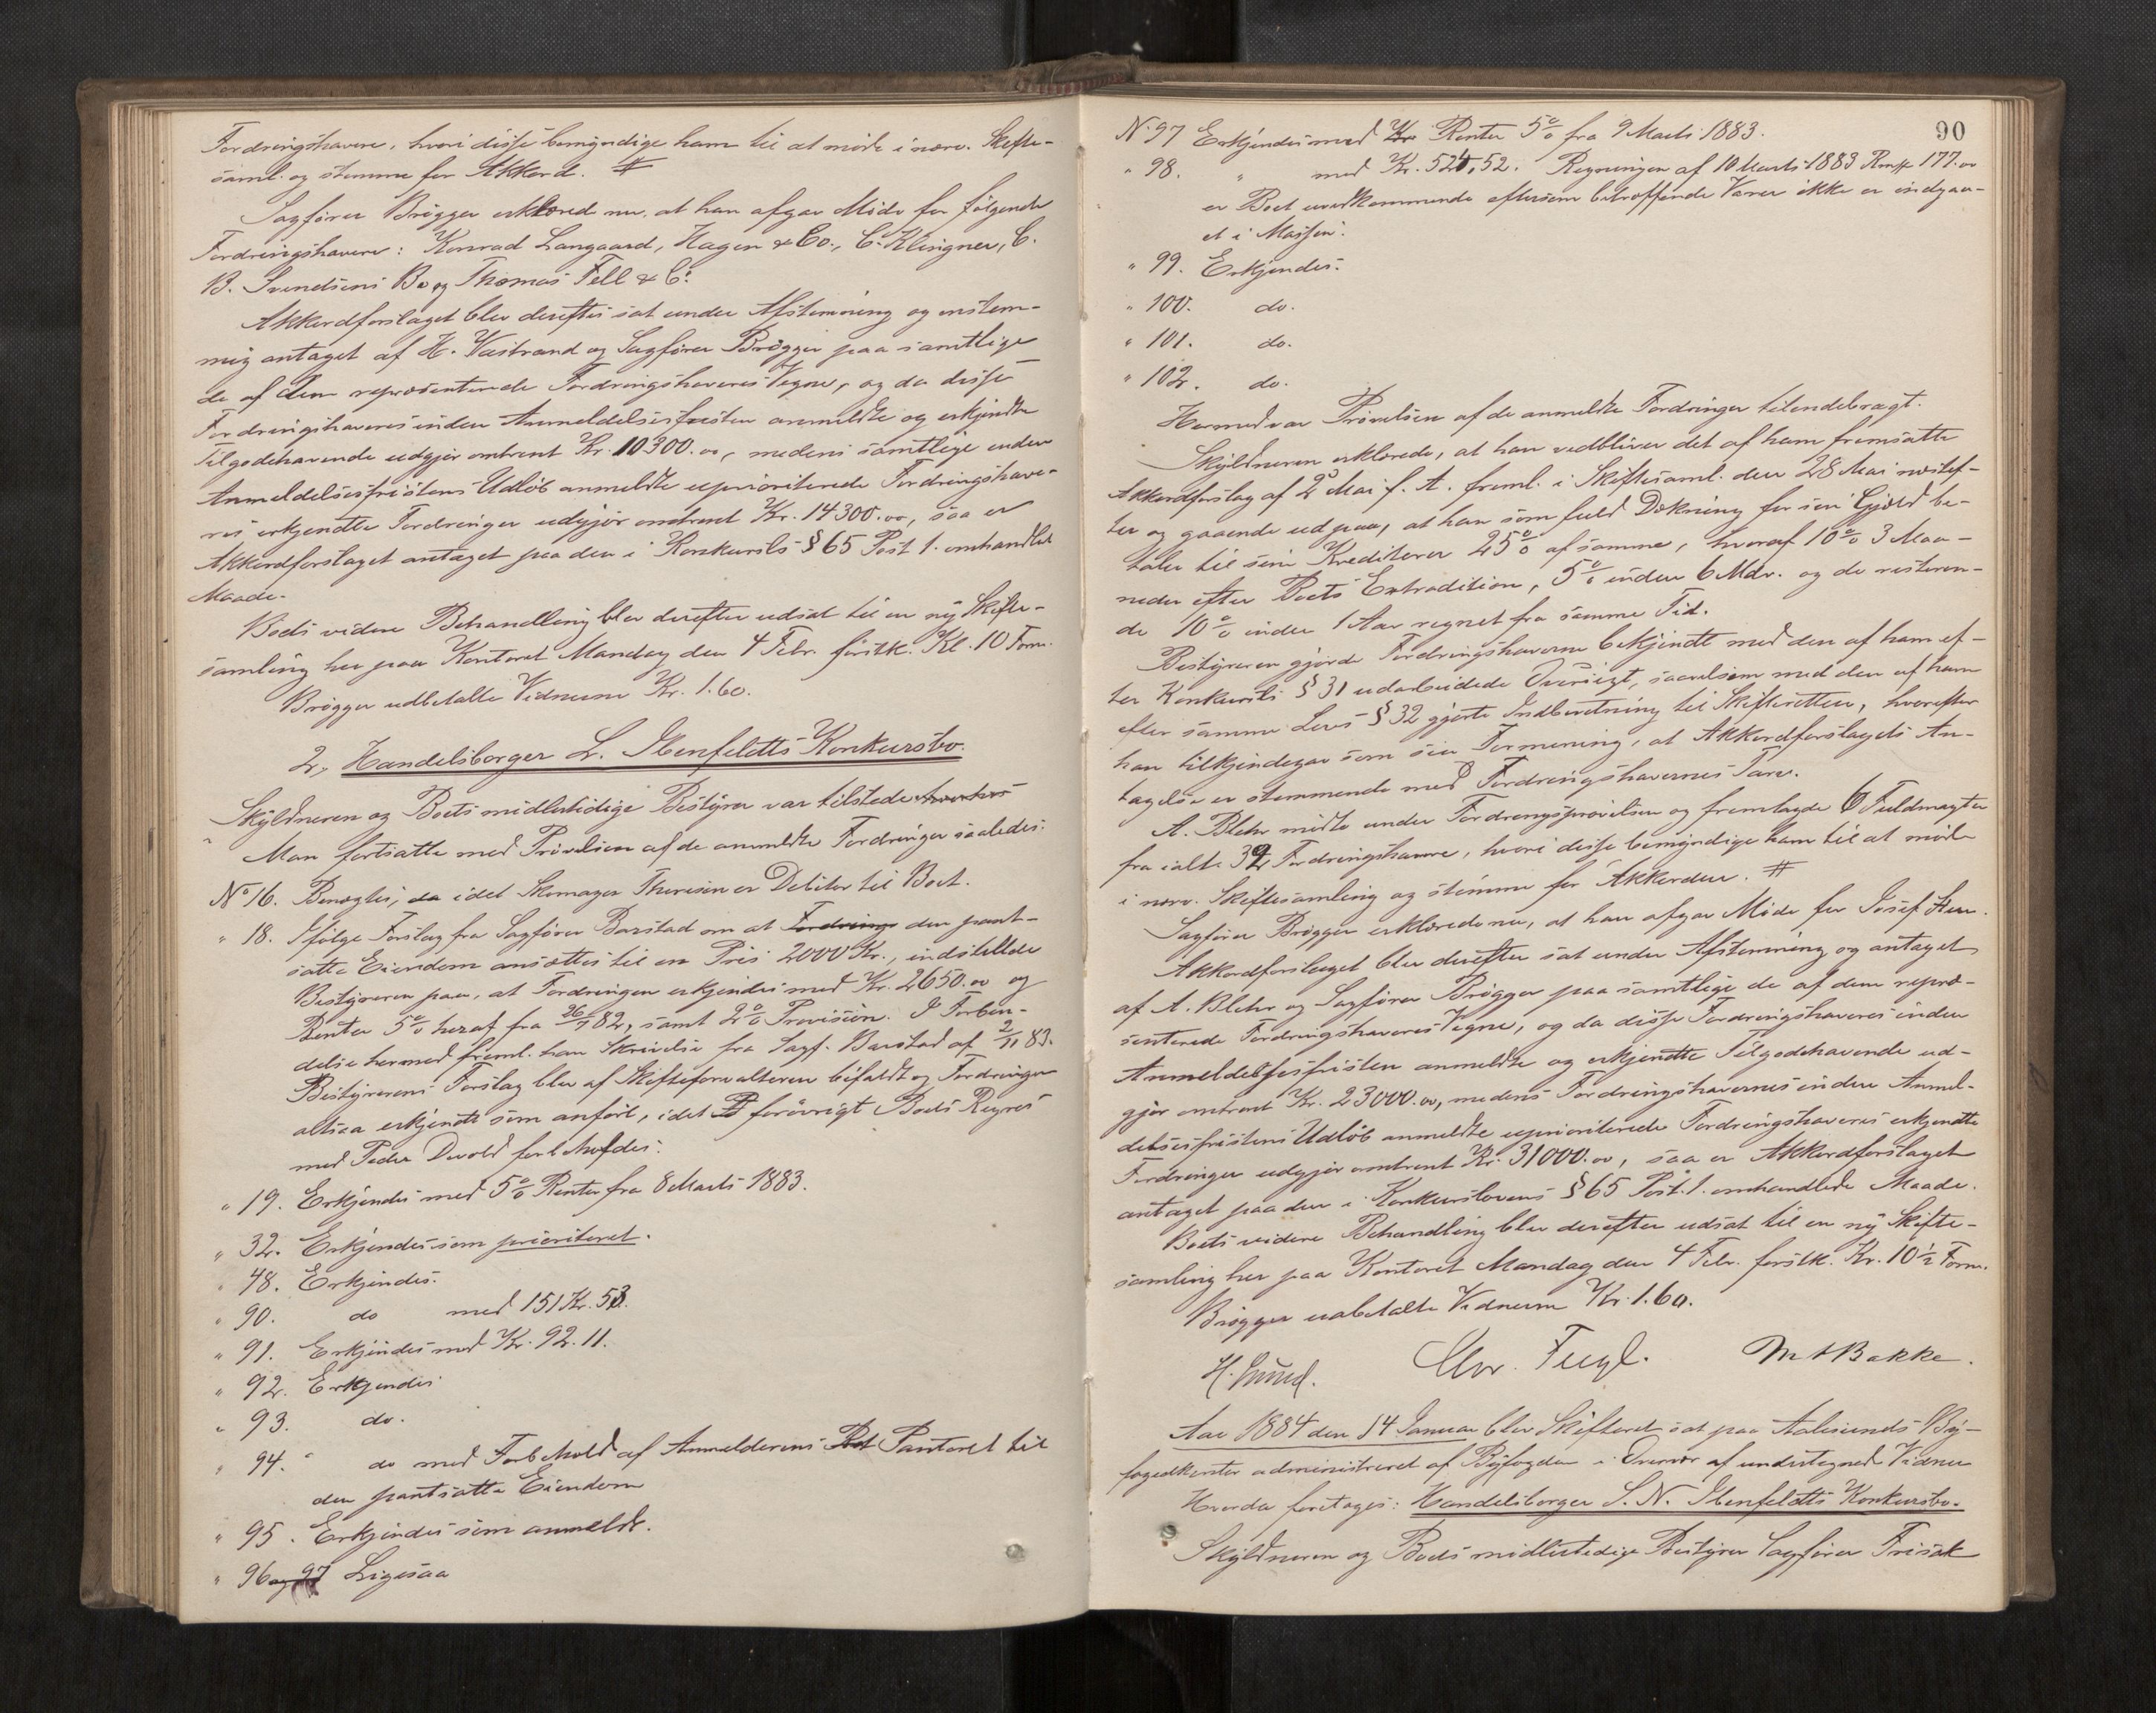 Fordringshavere, hvori disse bemyndige ham til at møde i nærv. Skifte-
saml. og stemme for Akkord. #
Sagfører Brøgger erklæred nu, at han afgav Møde for følgende
Fordringshavere: Konrad Langaard, Hagen & Co., C. Klingner, C.
B. Svendsens Bo og Thomas Fell & Co.
Akkordforslaget blev derefter sat under Afstemning og enstem-
mig antaget af H. Vastrand og Sagfører Brøgger paa samtlige
de af dem repræsenterede Fordringshaveres Vegne, og da disse
Fordringshaveres inden Anmeldelsesfristen anmeldte og erkjendte
Tilgodehavende udgjør omtrent Kr. 10300.00, medens samtlige inden
Anmeldelsesfristens Udløb anmeldte uprioriterede Fordringshave-
res erkjendte Fordringer udgjør omtrent Kr. 14300.00, saa er
Akkordforslaget antaget paa den i Konkursls § 65 Post 1. omhandlet
Maade.
Boets videre Behandling blev derefter udsat til en ny Skifte-
samling her paa Kontoret Mandag den 4 Febr. førstk. Kl. 10 Form.
Brøgger udbetalte Vidnerne Kr. 1.60.
2, Handelsborger L. Ibenfeldts Konkursbo.
Skyldneren og Boets midlertidige Bestyrer var tilstede
Man fortsatte med Prøvelsen af de anmeldte Fordringer saaledes:
No 16. Benægtes, da idet Skomager Theresen er Debitor til Boet.
" 18. Ifølge Forslag fra Sagfører Barstad om at Fordringe den pant-
satte Eiendom ansættes til en Pris 2000 Kr., indstillede
Bestyreren paa, at Fordringen erkjendes med Kr. 2650.00 og
Renter 5% heraf fra 26/7 82, samt 2% Provision. I Forbin-
delse hermed freml. han Skrivelse fra Sagf. Barstad af 2/11 83.
Bestyrerens Forslag blev af Skifteforvalteren bifaldt og Fordringen
altsaa erkjendt som anført, idet forøvrigt Boets Regres
med Peder Devold forbeholdes.
" 19. Erkjendes med 5% Renter fra 8 Marts 1883.
" 32. Erkjendes som prioriteret.
" 48. Erkjendes.
" 90. do med 151 Kr. 53.
" 91. Erkjendes med Kr. 92.11.
" 92. Erkjendes
" 93. do.
" 94. " do med Forbehold af Anmelderens Panteret til
den pantsatte Eiendom
" 95. Erkjendes som anmeldt.
" 96 og 97 Ligesaa
90
No 97 Erkjendes med Kr Renter 5% fra 9 Marts 1883.
" 98. " med Kr. 524,52. Regningen af 10 Marts 1883 177.00
er Boet uvedkommende eftersom betræffende Varer ikke er indgaa-
et i Massen.
" 99. Erkjendes.
" 100. do.
" 101. do.
" 102. do.
Hermed var Prøvelsen af de anmeldte Fordringer tilendebragt.
Skyldneren erklærede, at han vedbliver det af ham fremsatte
Akkordforslag af 2 Mai f. A. freml. i Skiftesaml. den 28 Mai næstef-
ter og gaaende ud paa, at han som fuld Dækning for sin Gjæld be-
taler til sine Kreditorer 25% af samme, hvoraf 10% 3 Maa-
neder efter Boets Extradition, 5% inden 6 Mdr. og de resteren-
de 10% inden 1 Aar regnet fra samme Tid.
Bestyreren gjorde Fordringshaverne bekjendt med den af ham ef-
ter Konkursls § 31 udarbeidede Oversigt, saavelsom med den af ham
efter samme Lovs § 32 gjorte Indberetning til Skifteretten, hvorefter
han tilkjendegav som sin Formening, at Akkordforslagets An-
tagelse er stemmende med Fordringshavernes Tarv.
A. Blehr mødte under Fordringsprøvelsen og fremlagde 6 Fuldmagter
fra ialt 39 Fordringshavere, hvori disse bemyndige ham til at møde
i nærv. Skiftesamling og stemme for Akkorden. #
Sagfører Brøgger erklærede nu, at han afgav Møde for Josef
Akkordforslaget blev derefter sat under Afstemning og antaget
af A. Blehr og Sagfører Brøgger paa samtlige de af dem repræ-
senterede Fordringshaveres Vegne, og da disse Fordringshaveres inden
Anmeldelsesfristen anmeldte og erkjendte Tilgodehavende ud-
gjør omtrent Kr. 23000.00, medens Fordringshavernes inden Anmel-
delsesfristens Udløb anmeldte uprioriterede Fordringshaveres erkjendte
Fordringer udgjør omtrent Kr. 31000.00, saa er Akkordforslaget
antaget paa den i Konkurslovens § 65 Post. 1. omhandlede Maade.
Boets videre Behandling blev derefter udsat til en ny Skifte-
samling her paa Kontoret Mandag den 4 Febr. førstk. Kr. 10½ Form.
Brøgger udbetalte Vidnerne Kr. 1.60.
Chr. Fugl. M A Bakke.
Aar 1884 den 14 Januar blev Skifteret sat paa Aalesunds By-
fogedkontor administreret af Byfogden i Overvær af undertegned Vidner
Hvorda foretages: Handelsborger S. N. Ibenfeldts Konkursbo.
Skyldneren og Boets midlertidige Bestyrer Sagfører Frisak